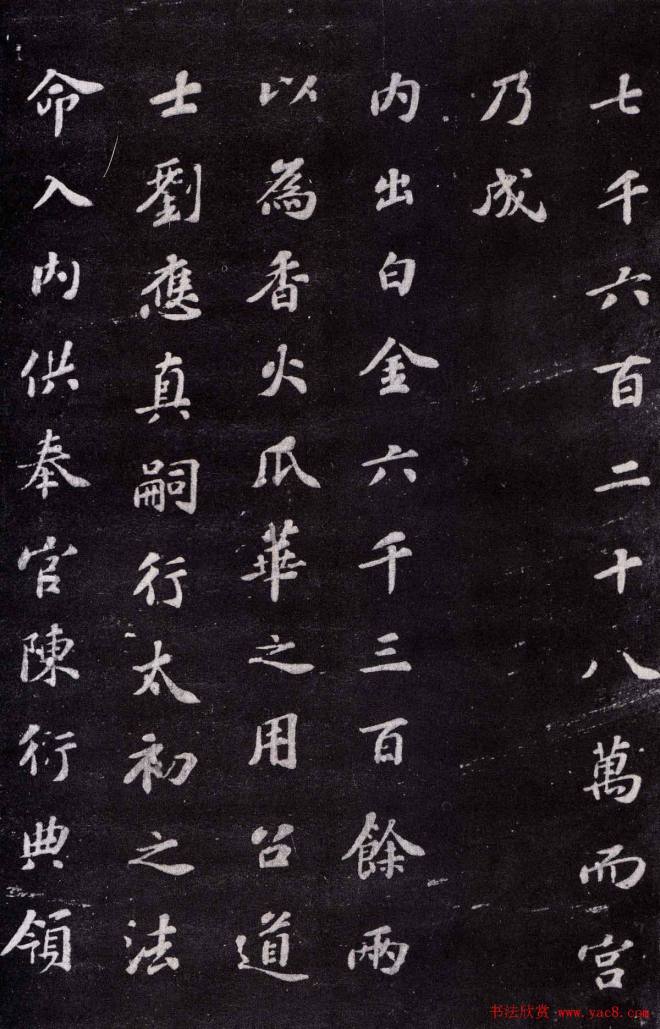 七千六百二十八萬而宫
乃成
内出白金六千三百餘兩
以為香火瓜華之用召道
士劉應真嗣行太初之法
命入内供奉官陳衍典領
书法欣赏 www.yac8.com